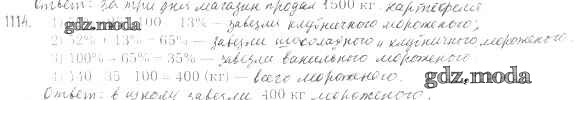 Ответ: за три дня магазин продал 1500 кг картофеля
1114. 100 13% - завезли клубничного мороженого;
gdz.moda
2) 52% + 13% = 65% - завезли шоколадного и клубничного мороженого.
3) 100% - 65% = 35% - завезли ванильного мороженого
4) 140 35 · 100 = 400 (кг) - всего мороженого.
gdz.moda
Ответ: в школу завезли 400 кг мороженого.